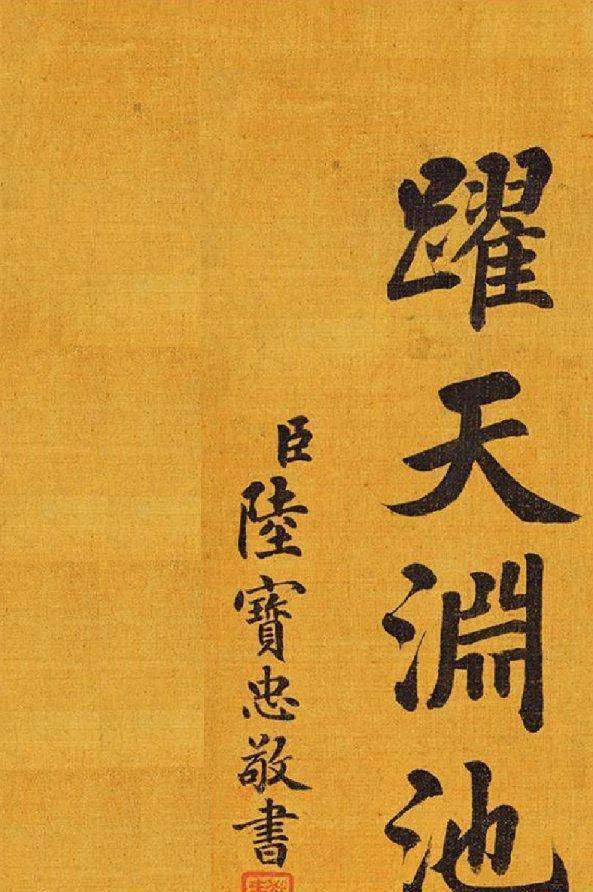 躍天淵池
臣陸寶忠敬書